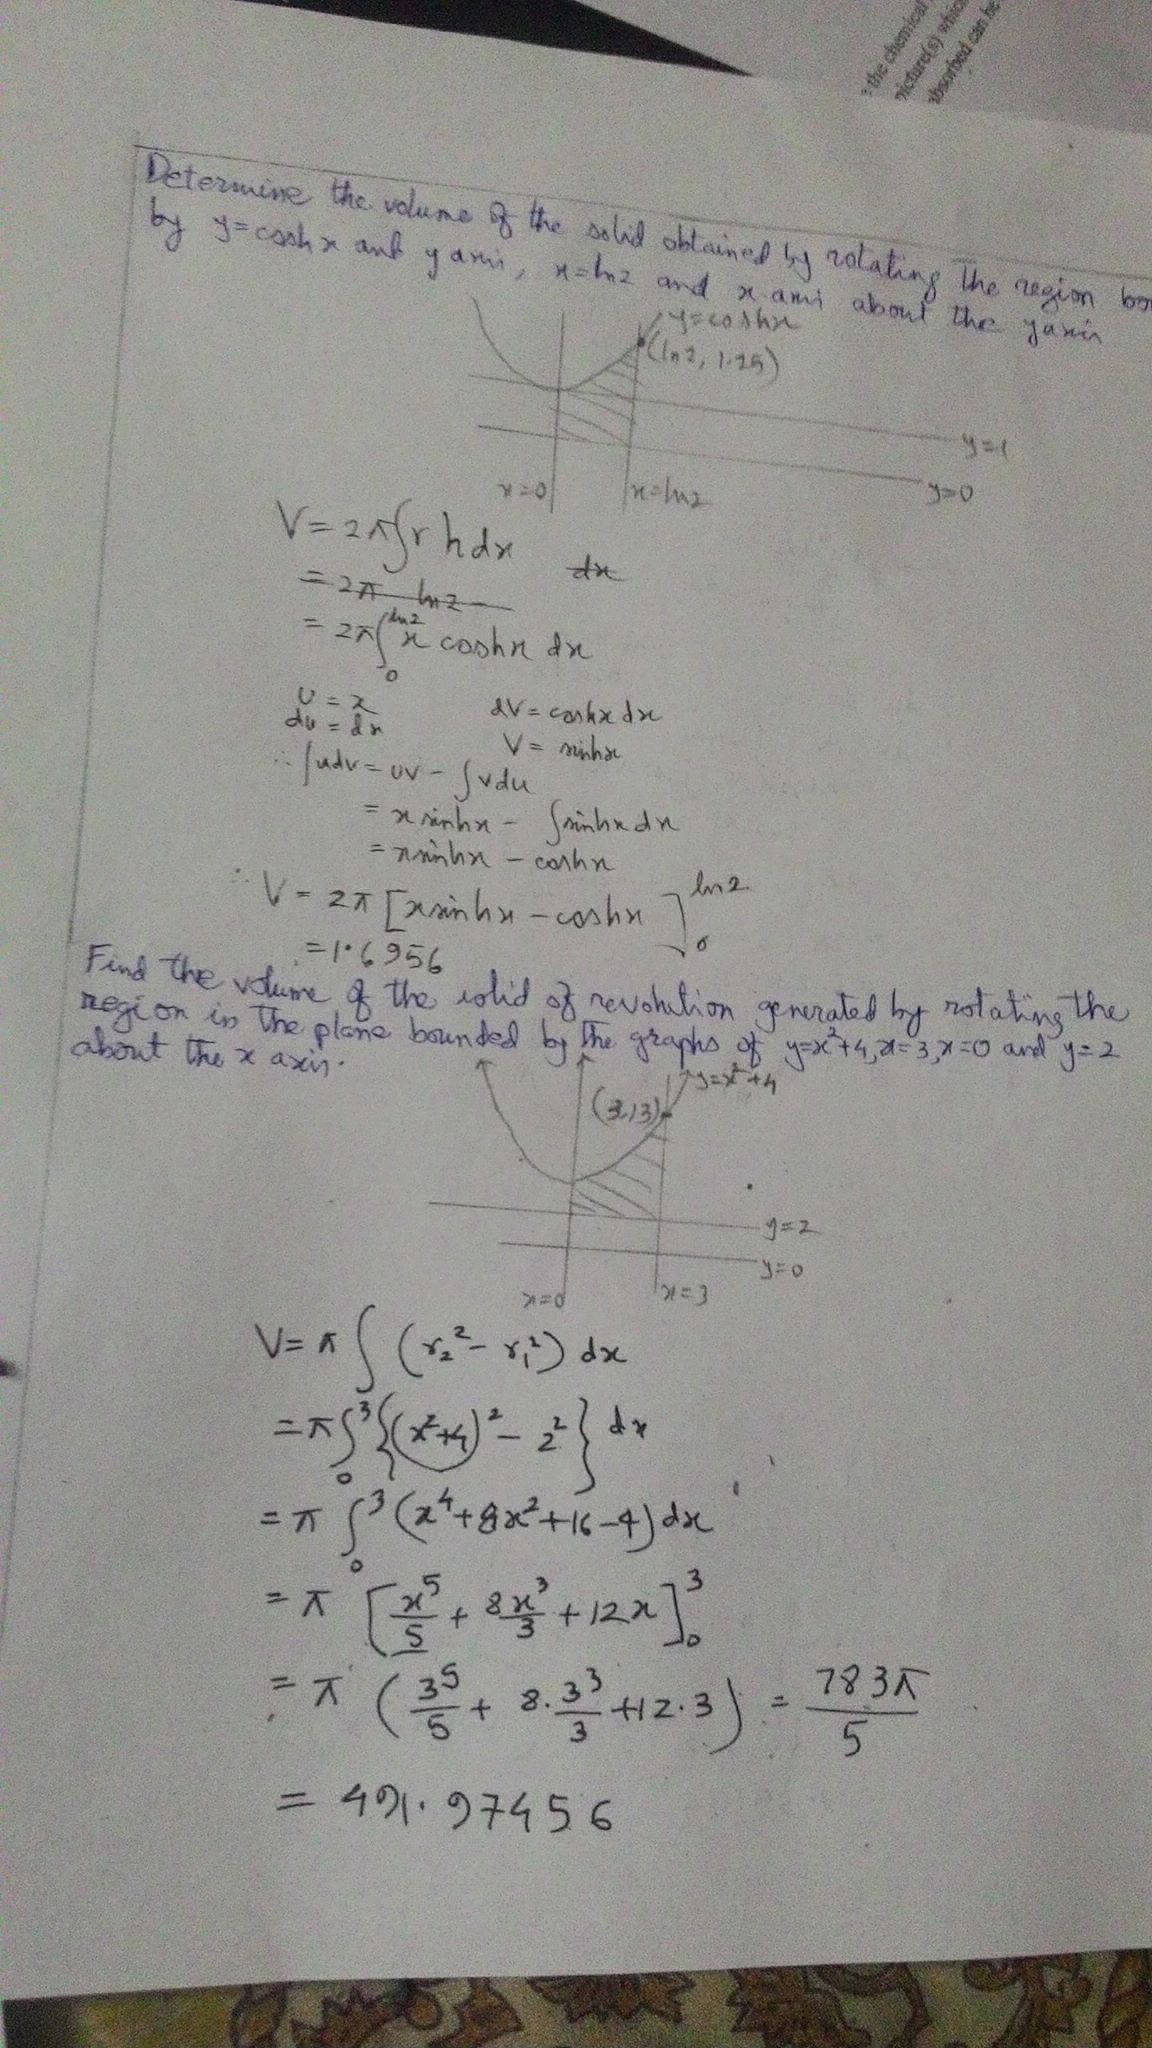 : the chemical
picture(s) which
absorbed can be
Determine the volume of the solid obtained by rotating the region
by y=coshx and y axis, x=ln2 and x axis about the y axis
y=coshx
(ln2, 1.25)
y=1
y=0
x=0
x=ln2
V = 2π∫r h dx
dx
= 2π ln2
= 2π∫₀^ln2 x coshx dx
U = x dV = coshx dx
du = dx V = sinhx
∴ ∫udv = uv - ∫vdu
= x sinhx - ∫sinhx dx
= x sinhx - coshx
∴ V = 2π [x sinhx - coshx]₀^ln2
= 1.6956
Find the volume of the solid of revolution generated by rotating the
region in the plane bounded by the graphs of y=x²+4, x=3, x=0 and y=2
about the x axis.
y=x²+4
(3,13)
y=2
y=0
x=0
x=3
V = π ∫ (r₂² - r₁²) dx
= π∫₀³ {(x²+4)² - 2²} dx
= π ∫₀³ (x⁴+8x²+16-4) dx
= π [x⁵/5 + 8x³/3 + 12x]₀³
= π (3⁵/5 + 8·3³/3 + 12·3) = 783π/5
= 491.97456